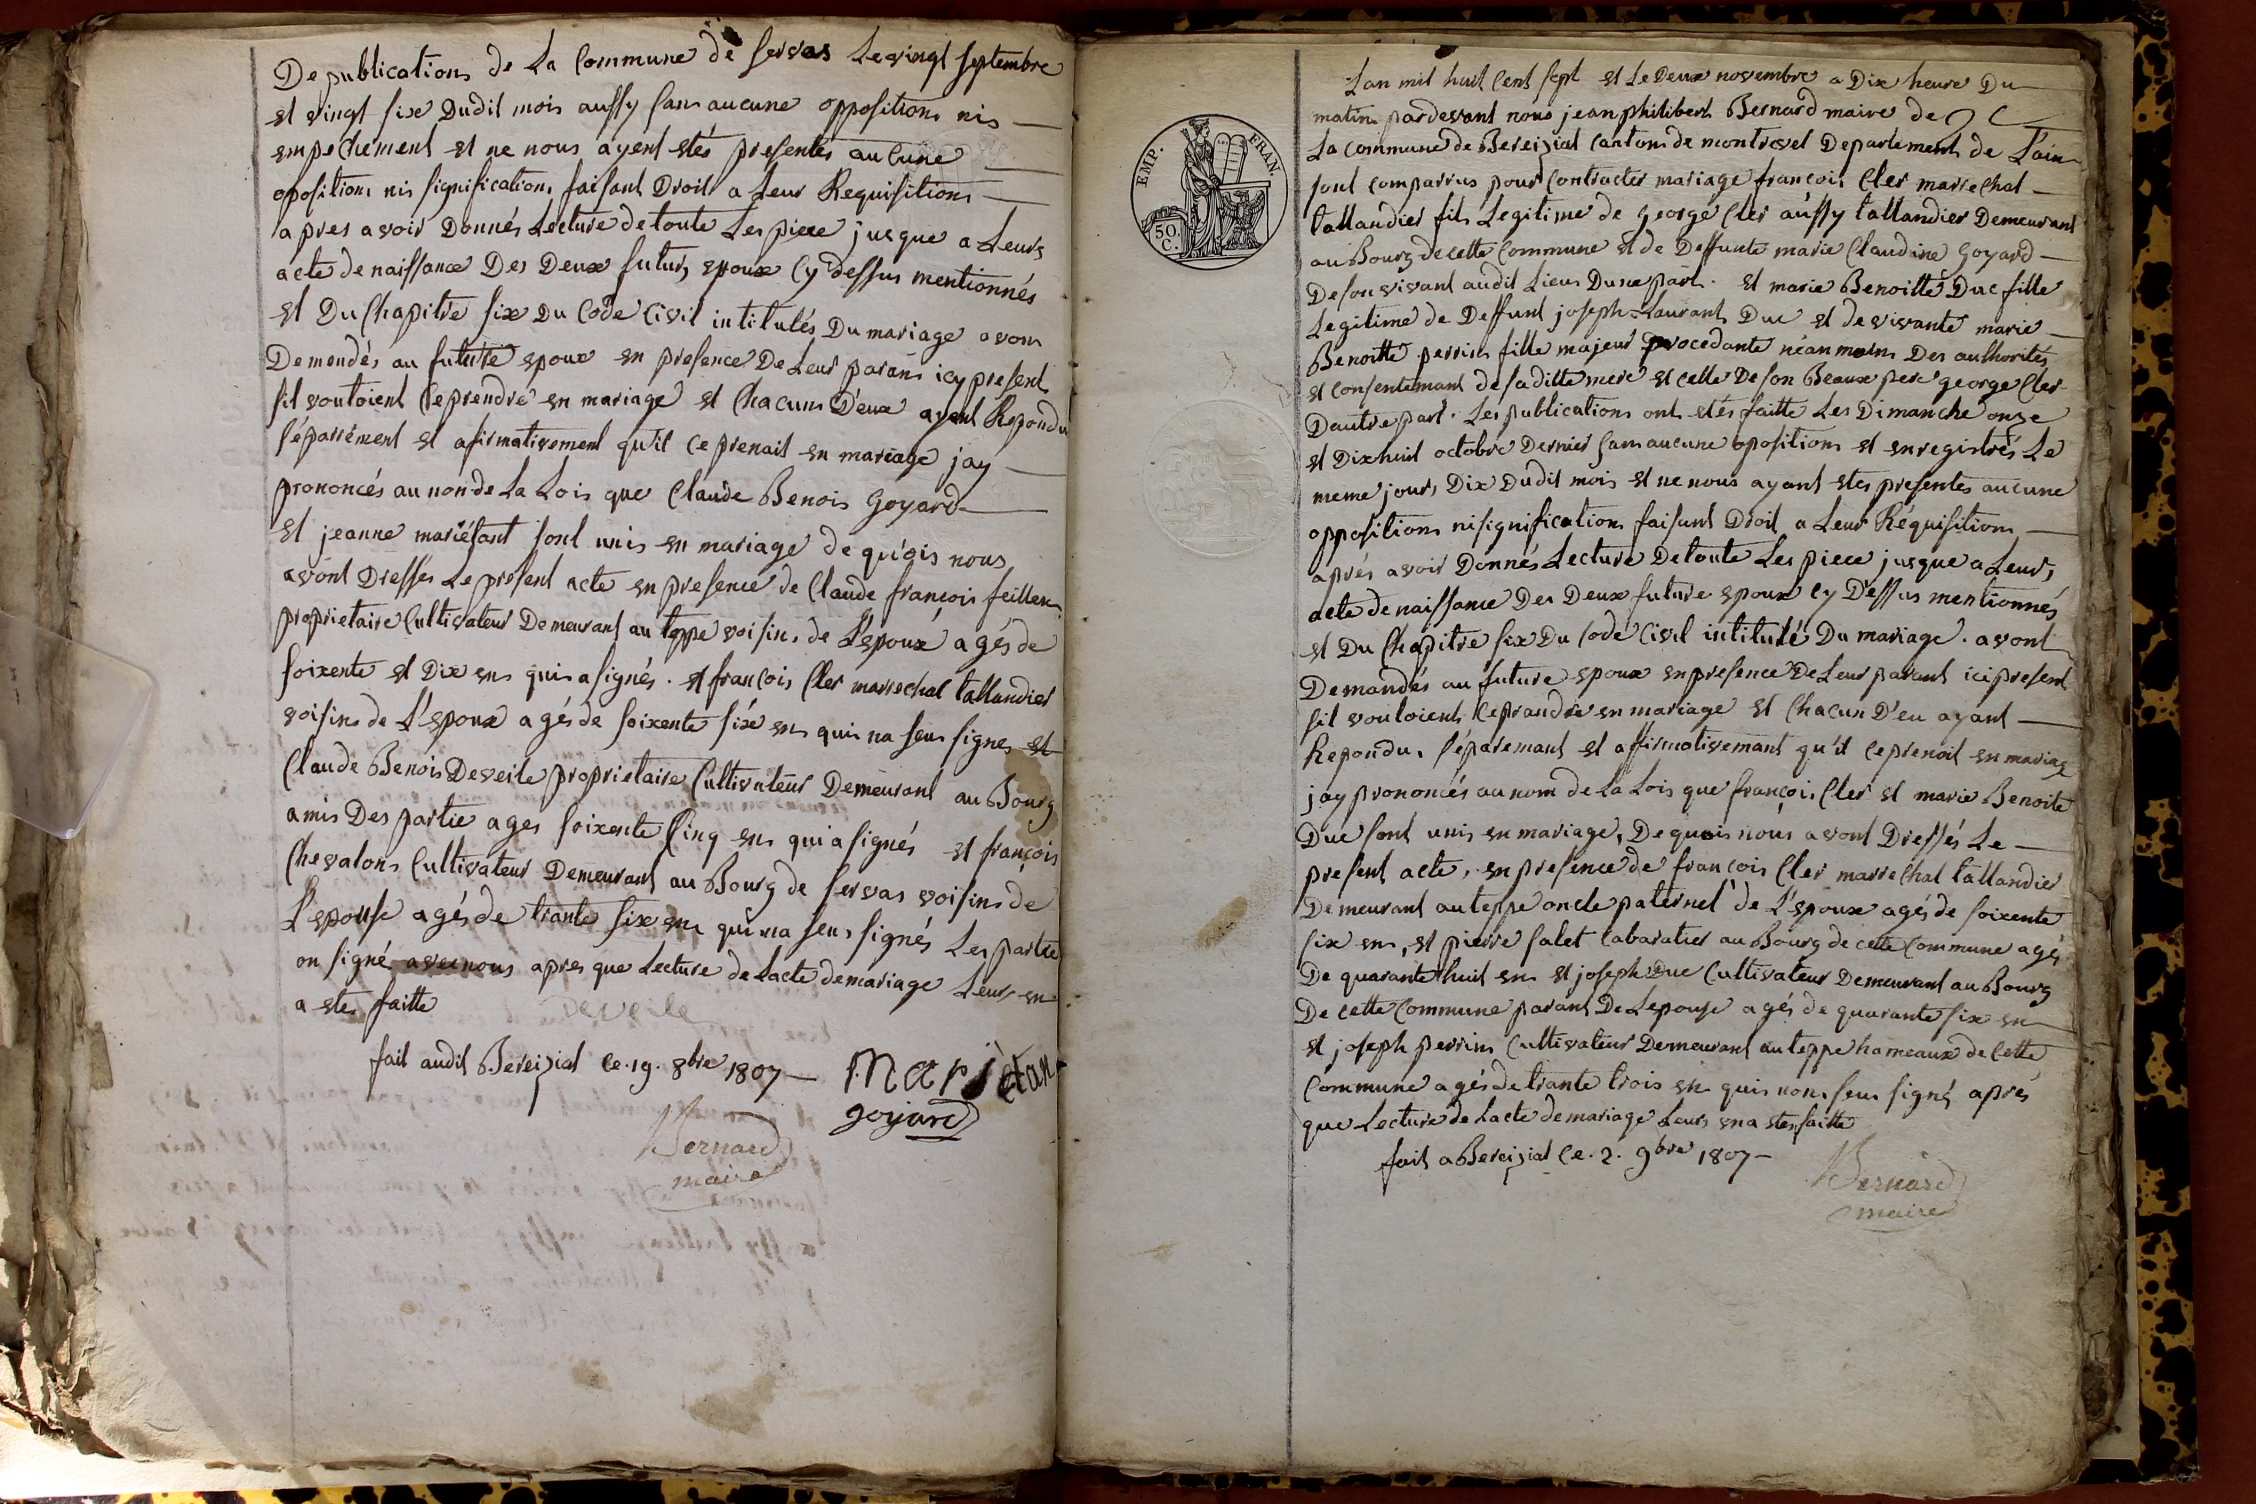 De publications de La Commune de Servas Le vingt Septembre
et vingt six Dudit mois aussy sans aucune oppositions nis
empechement et ne nous ayent etés presentés aucune
opositions nis significations faisant Droit a Leur Requisitions
apres avoir Donnés Lecture de toute Les piece jusque a Leurs
acte de naissance Des Deux futurs epoux Cy dessus mentionnés
et Du Chapitre six Du Code Civil intitulés Du mariage avons
Demendés au future epoux en presence De Leur parans icy present
sil voutoient Ce prendre en mariage et Chacuns D'eux ayent Repondu
séparrément et afirmativement qu'il Ce prenait en mariage jay
prononcés au non de La Lois que Claude Benois Goyard
et jeanne mariétant sont unis en mariage de qu'ois nous
avont Dressés Le present acte en presence de Claude francois feillens
proprietaire Cultivateur Demeurant au teppe voisins de L'epoux agés de
soixente et Dix ens quis a signés. et francois Cler marrechal tallandier
voisins de L'epoux agés de soixente six ens quis na seus signes et
Claude Benois Deveile proprietaire Cultivateur Demeurant au Bourg
amis Des partie ages soixente Cinq ens qui a signés et françois
Chevalons Cultivateur Demeurant au Bourg de Servas voisins de
L'epouse agés de trante six ens qui na seus signés Les partie
on signé avec nous apres que Lecture de Lacte de mariage Leurs en
a etes faitte
Deveile
fait audit Bereiziat Ce. 19. 8bre 1807
Mariétan
goyard
Bernard
maire
EMP. FRAN.
50. C.
Lan mil huit Cent sept et Le Deux novembre a Dix heure Du
matins pardevant nous jean philibert Bernard maire de
La Commune de Bereiziat Cantons de montrevel Departement de L'ain
sont Comparrus pour Contracter mariage francois Cler marrechal
tallandier fils Legitime de George Cler aussy tallandier Demeurant
au Bourg de cette Commune et de Deffunte marie Claudine Goyard
De son vivant audit Lieux Dune part. et marie Benoitte Duc fille
Legitime de Deffunt joseph-Laurant Duc et de vivante marie
Benoitte perrin fille majeur procedante néanmoins Des authorités
et Consentemant de sa ditte mere et celle De son Beaux pere george Cler
Dautre part. Les publications ont etés faitte Les Dimanche onze
et Dix huit octobre Dernier sans aucune opositions et enregistrés Le
meme jours Dix Dudit mois et ne nous ayant etes presentés aucune
oppositions ni significations faisant Droit a Leur Réquisitions
aprés avoir Donnés Lecture De toute Les piece jusque a Leurs
acte de naissance Des Deux future epoux Cy Dessus mentionnés
et Du Chapitre six Du Code Civil intitulé Du mariage. avont
Demandés au future epoux en presence De Leur parant ici present
sil voutoients Ce prandre en mariage et Chacun D'eu ayant
Repondu, séparemant et affirmativemant qu'il Ce prenoit en mariage
jay prononcés au nom de La Lois que françois Cler et marie Benoite
Duc sont unis en mariage, De quois nous avont Dressés Le
present acte, en presence de françois Cler marrechal tallandier
Demeurant au teppe oncle paternel de L'epoux agés de soixente
six ens, et pierre salet Cabaratier au Bourg de cette Commune agés
De quarante huit ens et joseph Duc Cultivateur Demeurant au Bourg
De cette Commune parant De Lepouse agés de quarante six en
et joseph perrin Cultivateur Demeurant au teppe hameaux de Cette
Commune agés de trante trois ens quis nons seus signés aprés
que Lecture de Lacte de mariage Leurs en a etes faitte
fait a Bereiziat Ce. 2. 9bre 1807
Bernard
maire